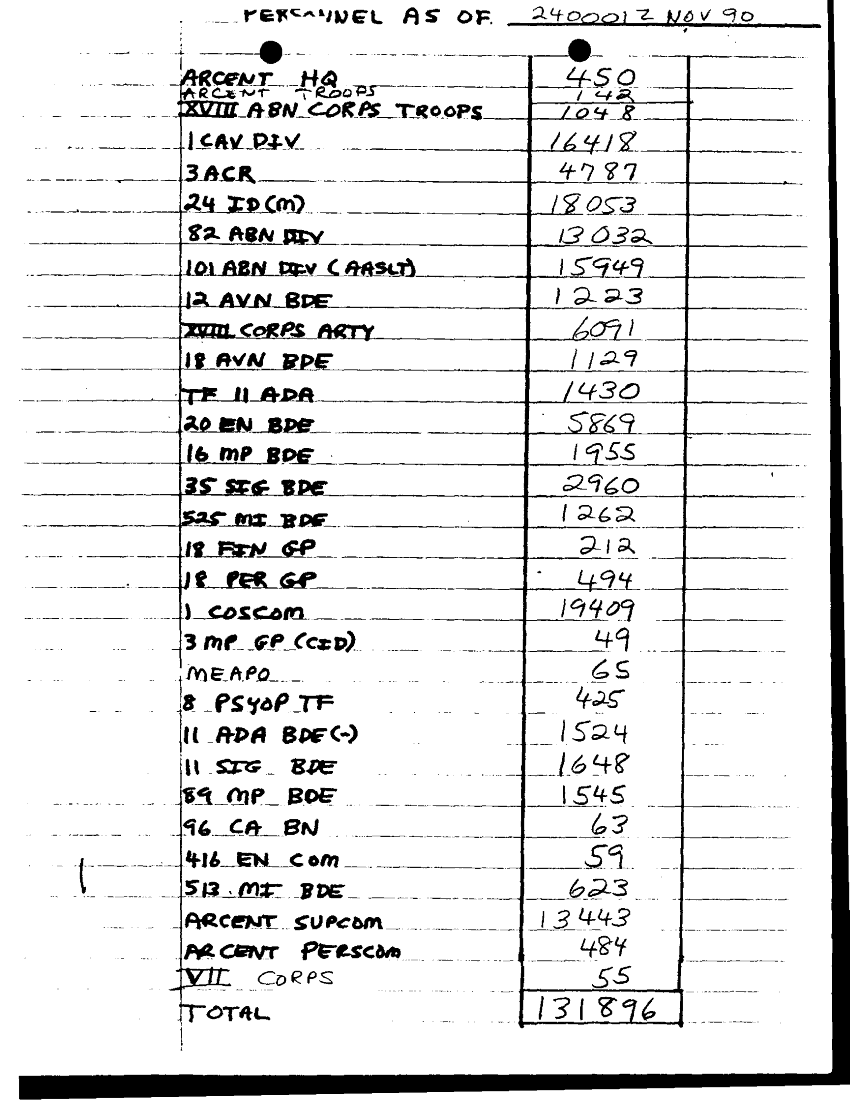 PERSONNEL AS OF 240001Z NOV 90
ARCENT HQ 450
ARCENT TROOPS 142
XVIII ABN CORPS TROOPS 1048
1 CAV DIV 16418
3 ACR 4787
24 ID(M) 18053
82 ABN DIV 13032
101 ABN DIV (AASLT) 15949
12 AVN BDE 1223
XVIII CORPS ARTY 6091
18 AVN BDE 1129
TF 11 ADA 1430
20 EN BDE 5869
16 MP BDE 1955
35 SIG BDE 2960
525 MI BDE 1262
18 FIN GP 212
18 PER GP 494
1 COSCOM 19409
3 MP GP (CID) 49
MEAPO 65
8 PSYOP TF 425
11 ADA BDE(-) 1524
11 SIG BDE 1648
89 MP BDE 1545
96 CA BN 63
416 EN COM 59
513 MI BDE 623
ARCENT SUPCOM 13443
ARCENT PERSCOM 484
VII CORPS 55
TOTAL 131896